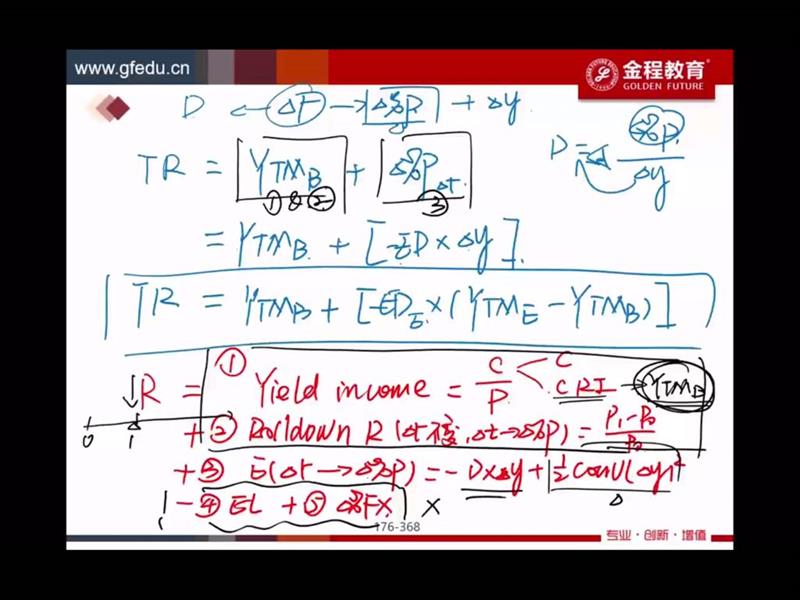 www.gfedu.cn
金程教育
GOLDEN FUTURE
D ← ΔF → Δ%P + Δy
TR = YTM_B + Δ%P_Δt
①&② ③
D = Δ%P / Δy
= YTM_B + [-ED × Δy]
TR = YTM_B + [-ED_E × (YTM_E - YTM_B)]
↓R = ① Yield income = C/P < C
C RI → YTM_B
0 1
+ ② Rolldown R (Δr不变, Δt→Δ%P) = P₁-P₀ / P₀
+ ③ E(Δr → Δ%P) = - D×Δy + ½ Conv(Δy)²
- ④ EL + ⑤ Δ%FX ×
176-368
专业·创新·增值